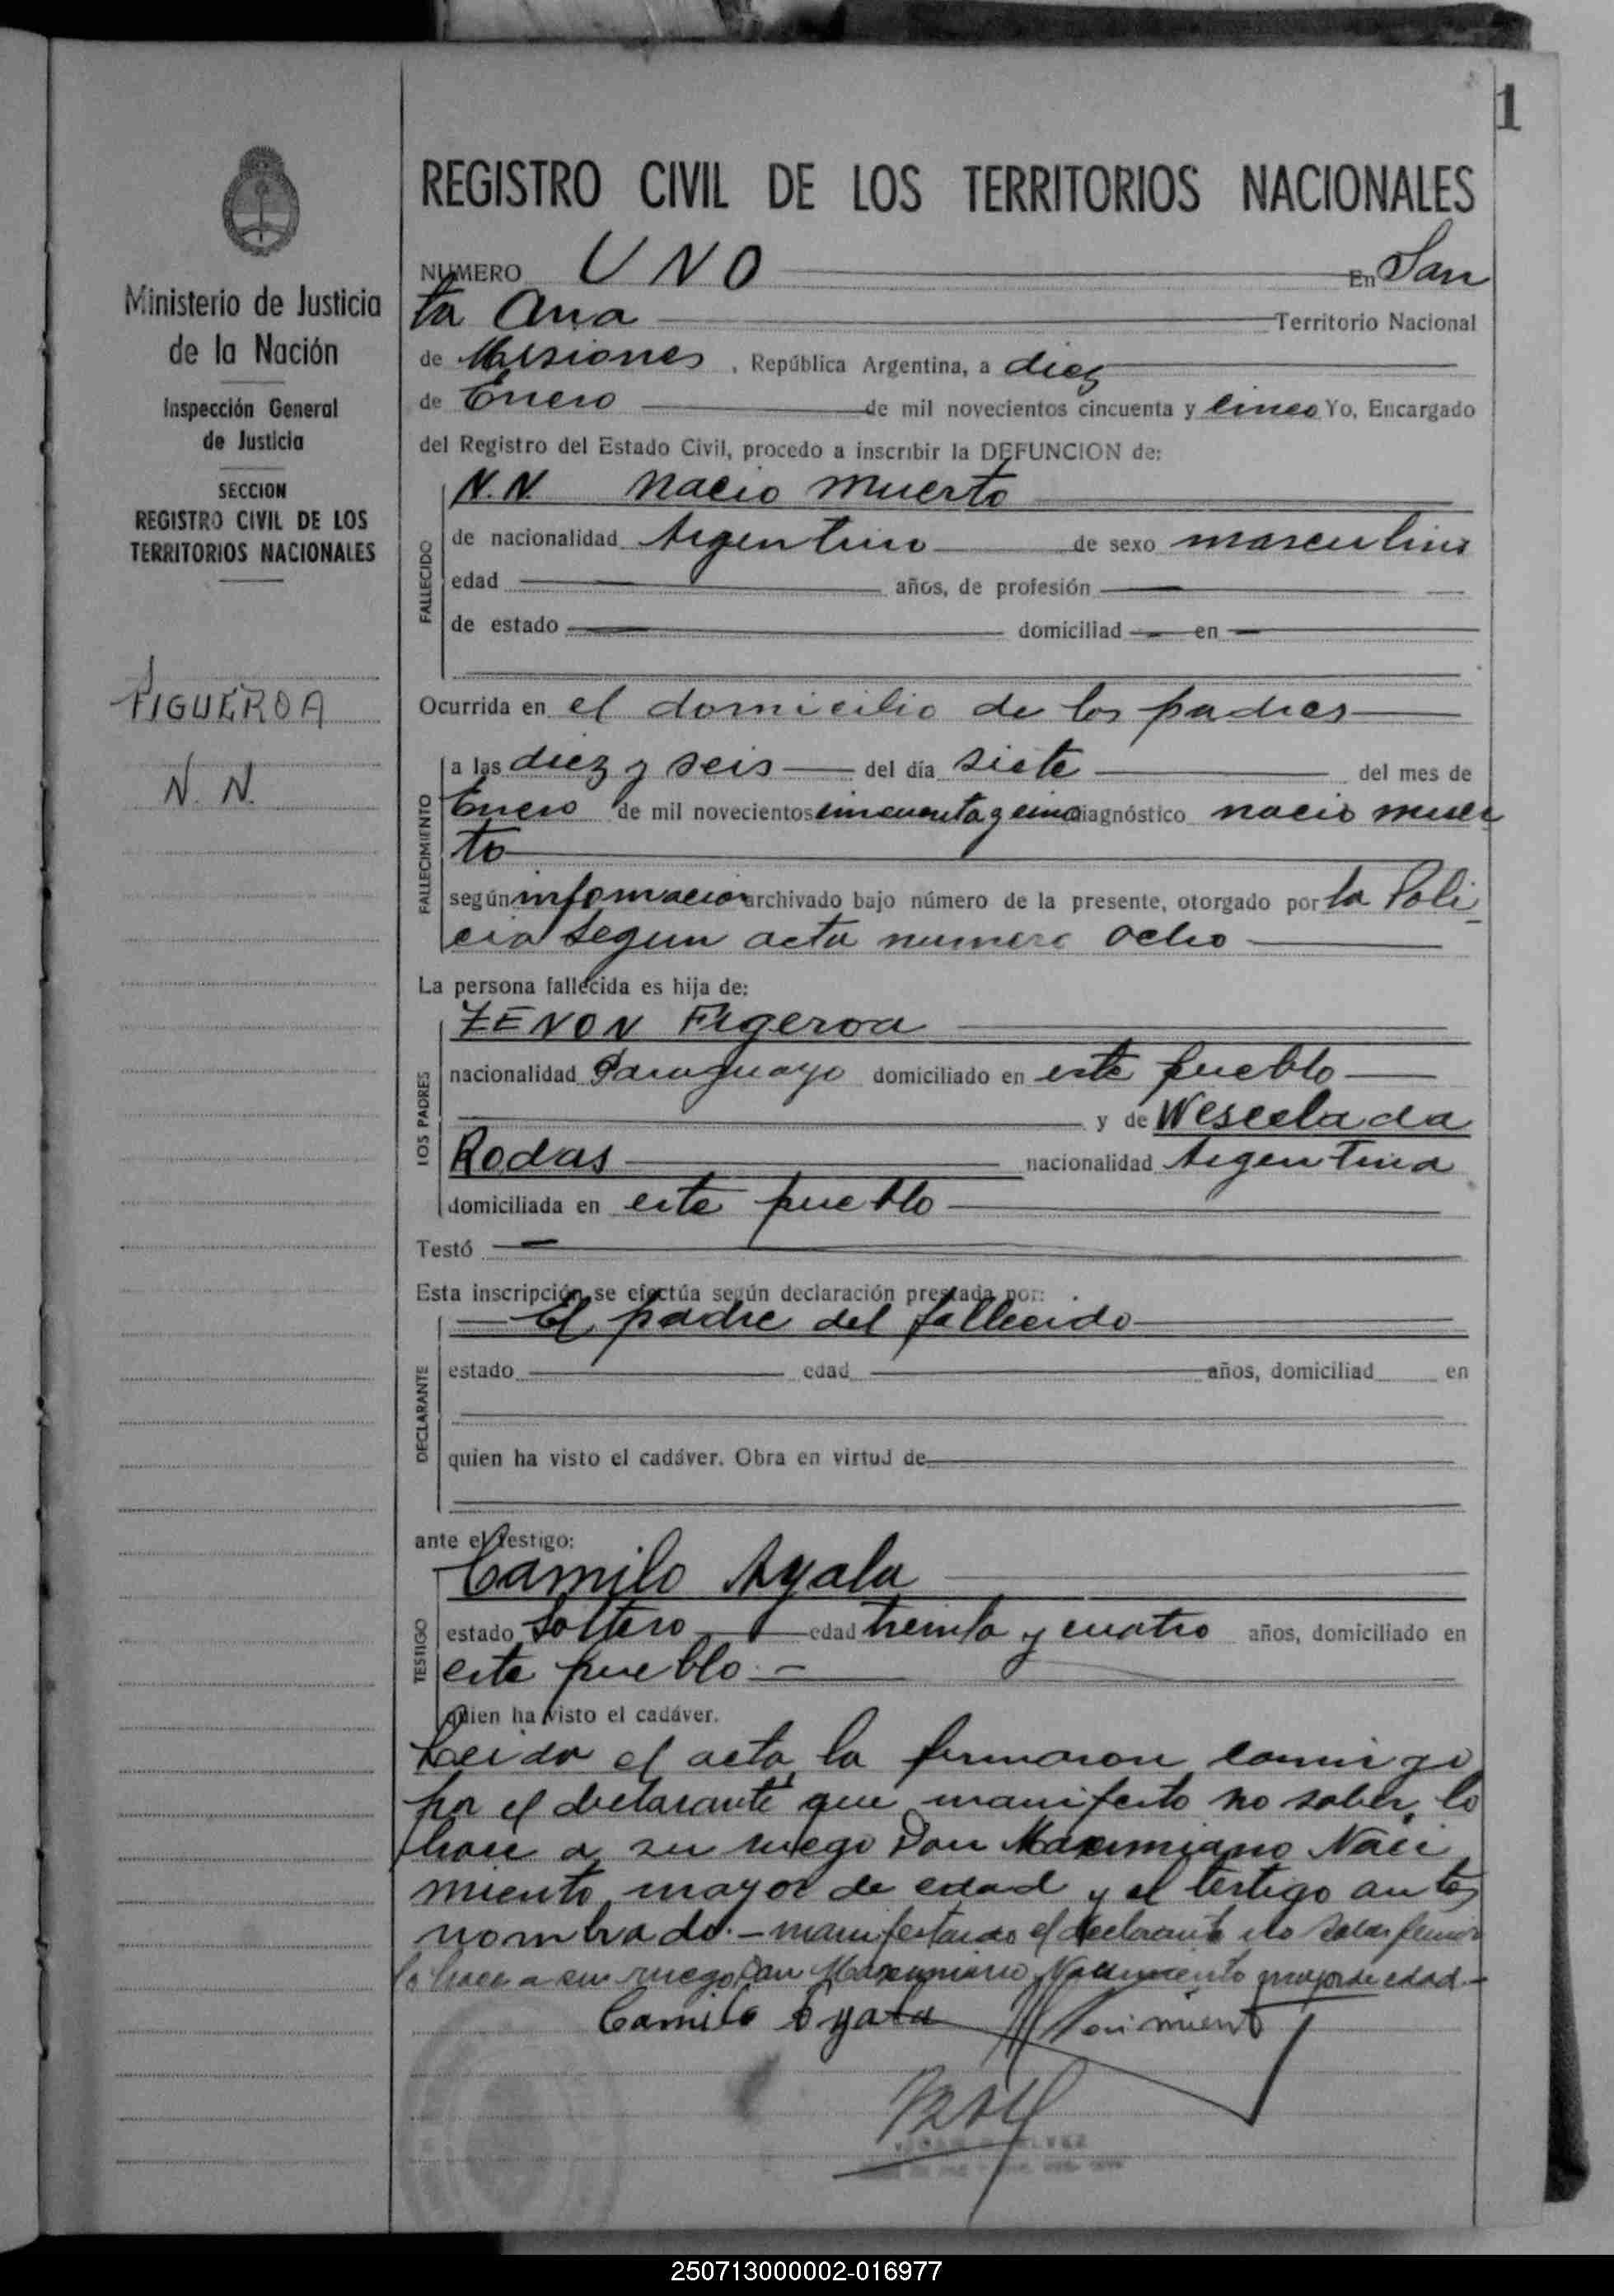 1
REGISTRO CIVIL DE LOS TERRITORIOS NACIONALES
Ministerio de Justicia
de la Nación
Inspección General
de Justicia
SECCION
REGISTRO CIVIL DE LOS
TERRITORIOS NACIONALES
FIGUEROA
N. N.
NUMERO UNO En San
ta Ana Territorio Nacional
de Misiones, República Argentina, a diez
de Enero de mil novecientos cincuenta y cinco Yo, Encargado
del Registro del Estado Civil, procedo a inscribir la DEFUNCION de:
FALLECIDO
N.N. nacio muerto
de nacionalidad Argentino de sexo masculino
edad años, de profesión
de estado domiciliad en
Ocurrida en el domicilio de los padres
FALLECIMIENTO
a las diez y seis del día siete del mes de
Enero de mil novecientos cincuenta y cinco diagnóstico nacio muer
to
según informacion archivado bajo número de la presente, otorgado por la Poli
cia segun acta numero ocho
La persona fallecida es hija de:
LOS PADRES
ZENON Figeroa
nacionalidad Paraguayo domiciliado en este pueblo
y de Wescelada
Rodas nacionalidad Argentina
domiciliada en este pueblo
Testó
Esta inscripción se efectúa según declaración prestada por:
DECLARANTE
El padre del fallecido
estado edad años, domiciliad en
quien ha visto el cadáver. Obra en virtud de
ante el testigo:
TESTIGO
Camilo Ayala
estado Soltero edad treinta y cuatro años, domiciliado en
este pueblo.-
quien ha visto el cadáver.
Leida el acta, la firmaron conmigo
por el declarante que manifesto no saber, lo
hace a su ruego Don Maximiano Naci
miento, mayor de edad y el testigo antes
nombrado.- manifestando el declarante no saber firmar
lo hace a su ruego Don Maximiano Nacimiento mayor de edad.-
Camilo Ayala Nacimiento
250713000002-016977